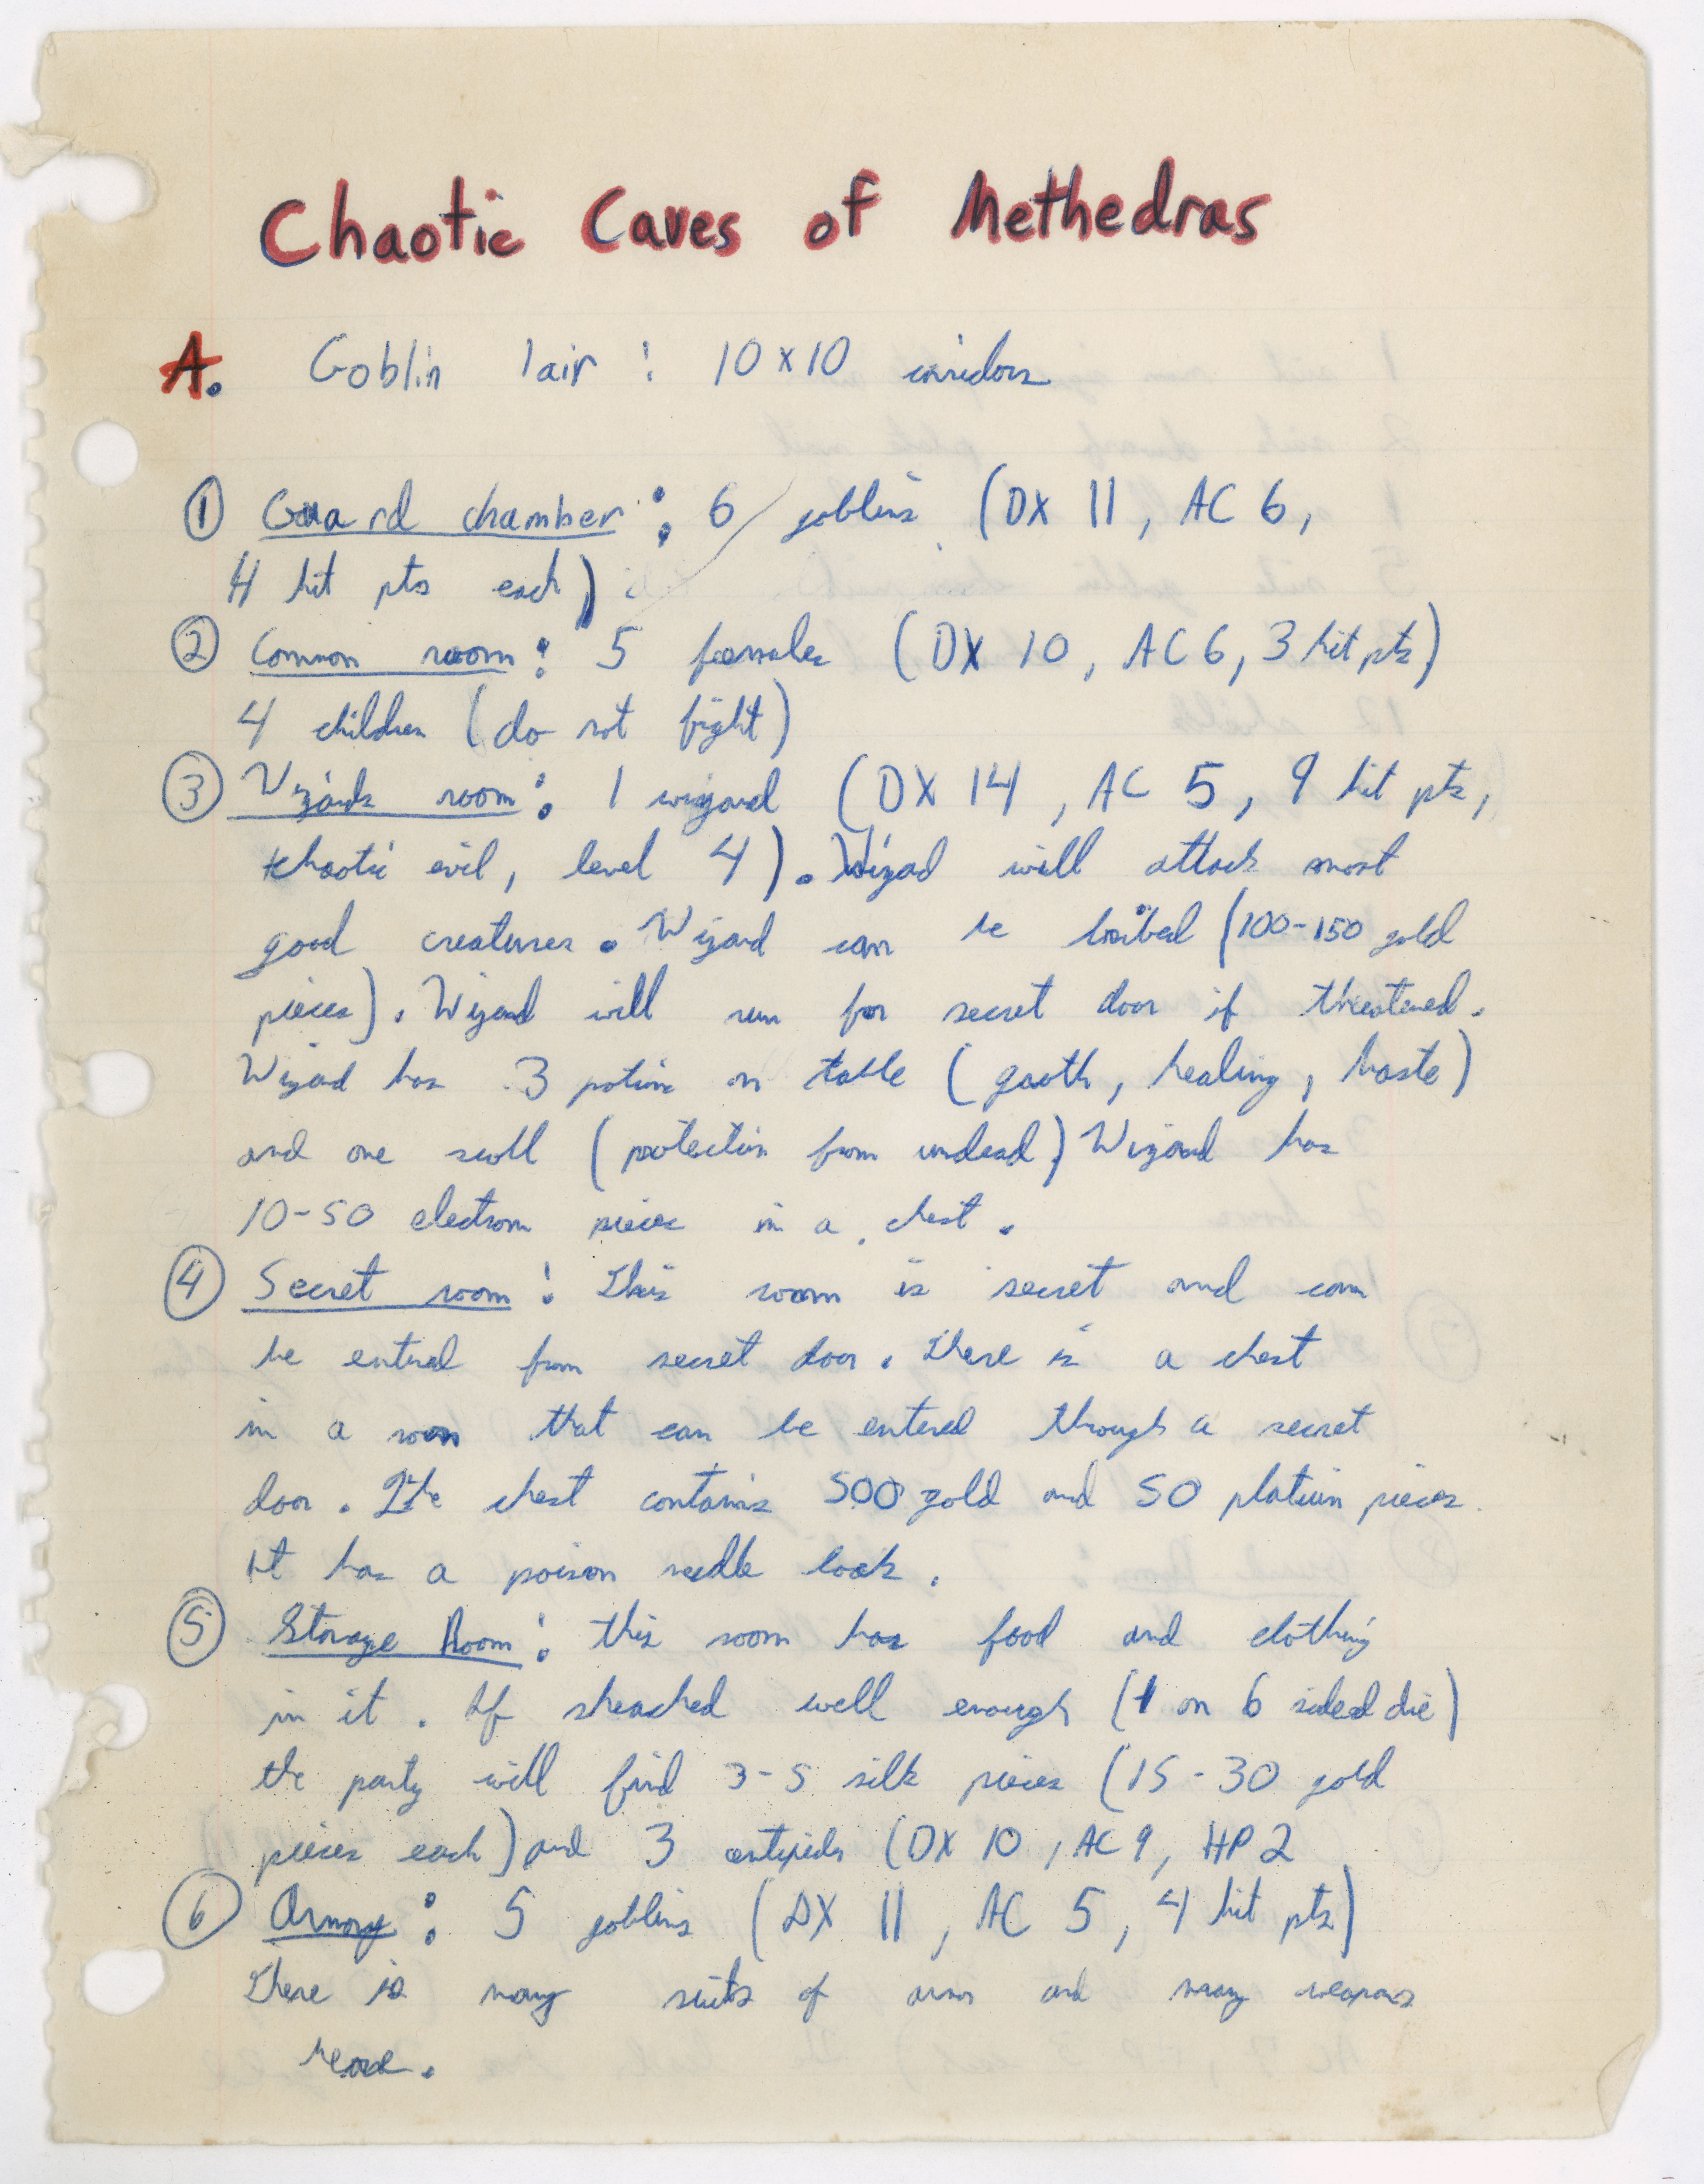 Chaotic Caves of Methedras
A. Goblin lair : 10 x 10 corridors
① Guard chamber : 6 goblins (DX 11, AC 6,
4 hit pts each)
② Common room : 5 females (DX 10, AC 6, 3 hit pts)
4 children (do not fight)
③ Wizards room : 1 wizard (DX 14, AC 5, 9 hit pts,
chaotic evil, level 4). Wizad will attack most
good creatures. Wizard can be bribed (100-150 gold
pieces). Wizard will run for secret door if threatened.
Wizard has 3 potions on table (gowth, healing, haste)
and one scroll (protection from undead) Wizard has
10-50 electrom pieces in a chest.
④ Secret room : This room is secret and can
be entered from secret door. There is a chest
in a room that can be entered through a secret
door. The chest contains 500 gold and 50 platium pieces.
It has a poison needle lock.
⑤ Storage Room : this room has food and clothing
in it. If sheached well enough (1 on 6 sided die)
the party will find 3-5 silk pieces (15-30 gold
pieces each) and 3 centipides (DX 10, AC 9, HP 2
⑥ Armory : 5 goblins (DX 11, AC 5, 4 hit pts)
There is many suits of armor and many weapons